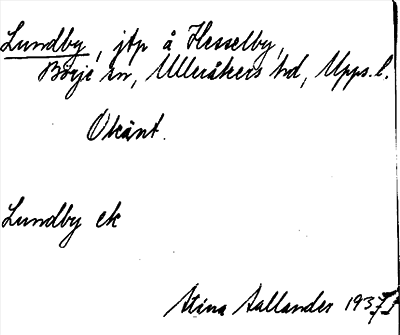 Lundby, jtp å Hesselby,
Börje sn, Ulleråkers hd, Upps. l.
Okänt.
Lundby ek
Stina Aallander 193